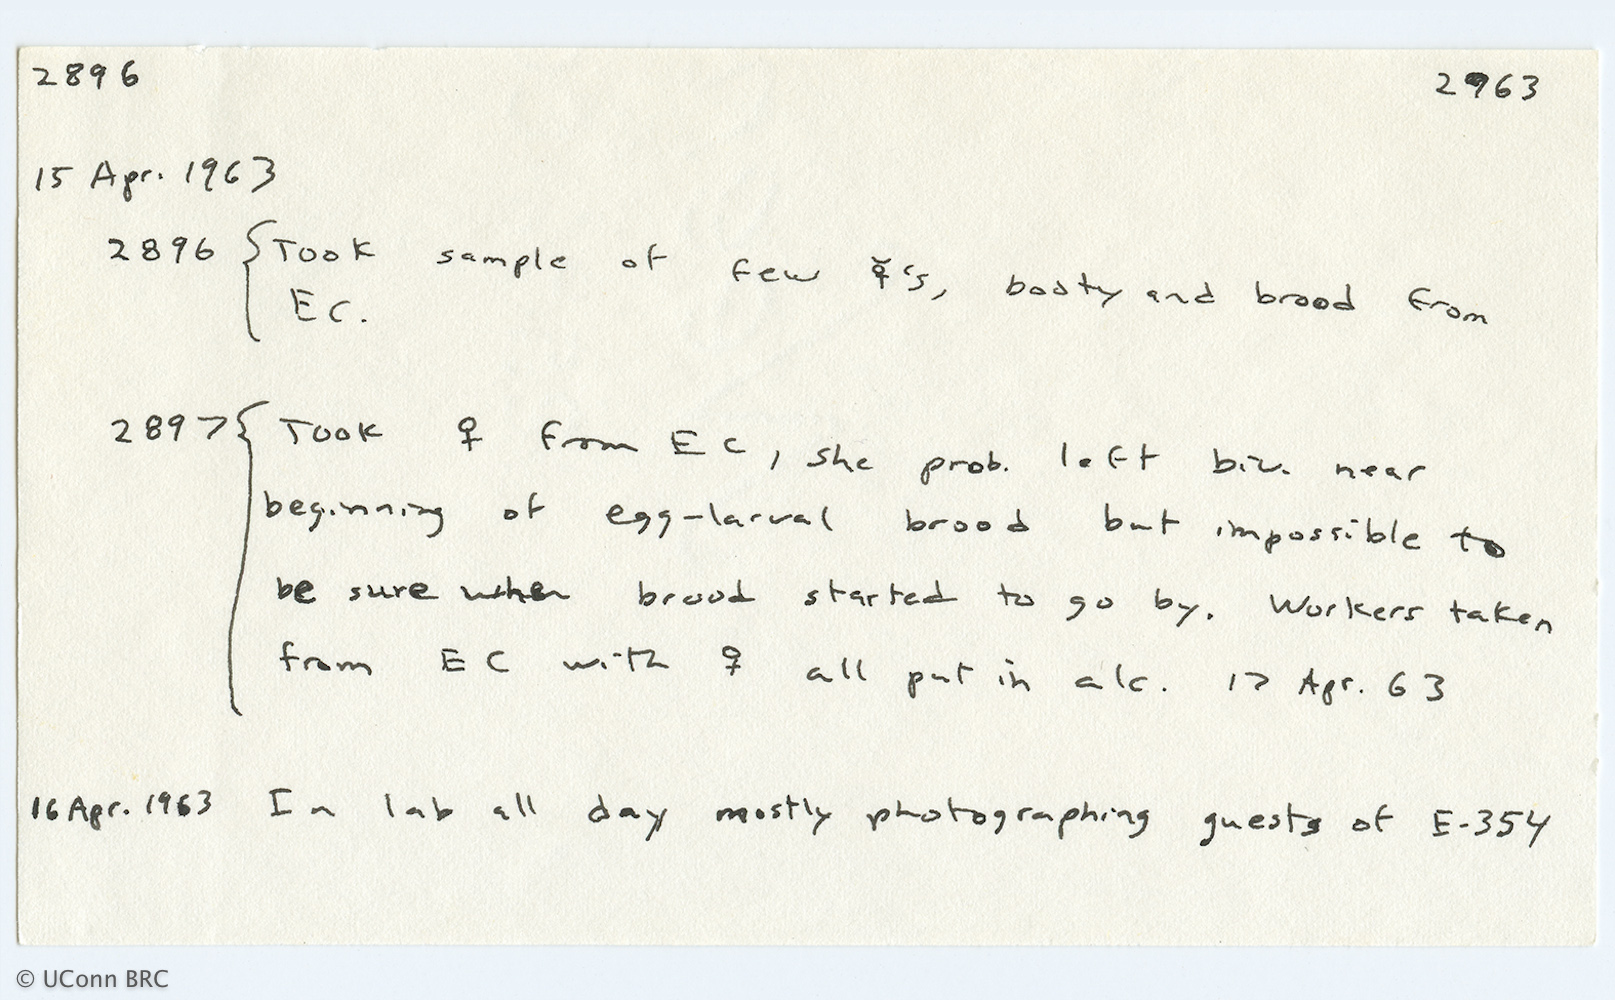 2896 2963
15 Apr. 1963
2896 { Took sample of few ☿'s, booty and brood from
EC.
2897 { Took ♀ from EC, she prob. left biv. near
beginning of egg-larval brood but impossible to
be sure when brood started to go by. Workers taken
from EC with ♀ all put in alc. 17 Apr. 63
16 Apr. 1963 In lab all day mostly photographing guests of E-354
© UConn BRC